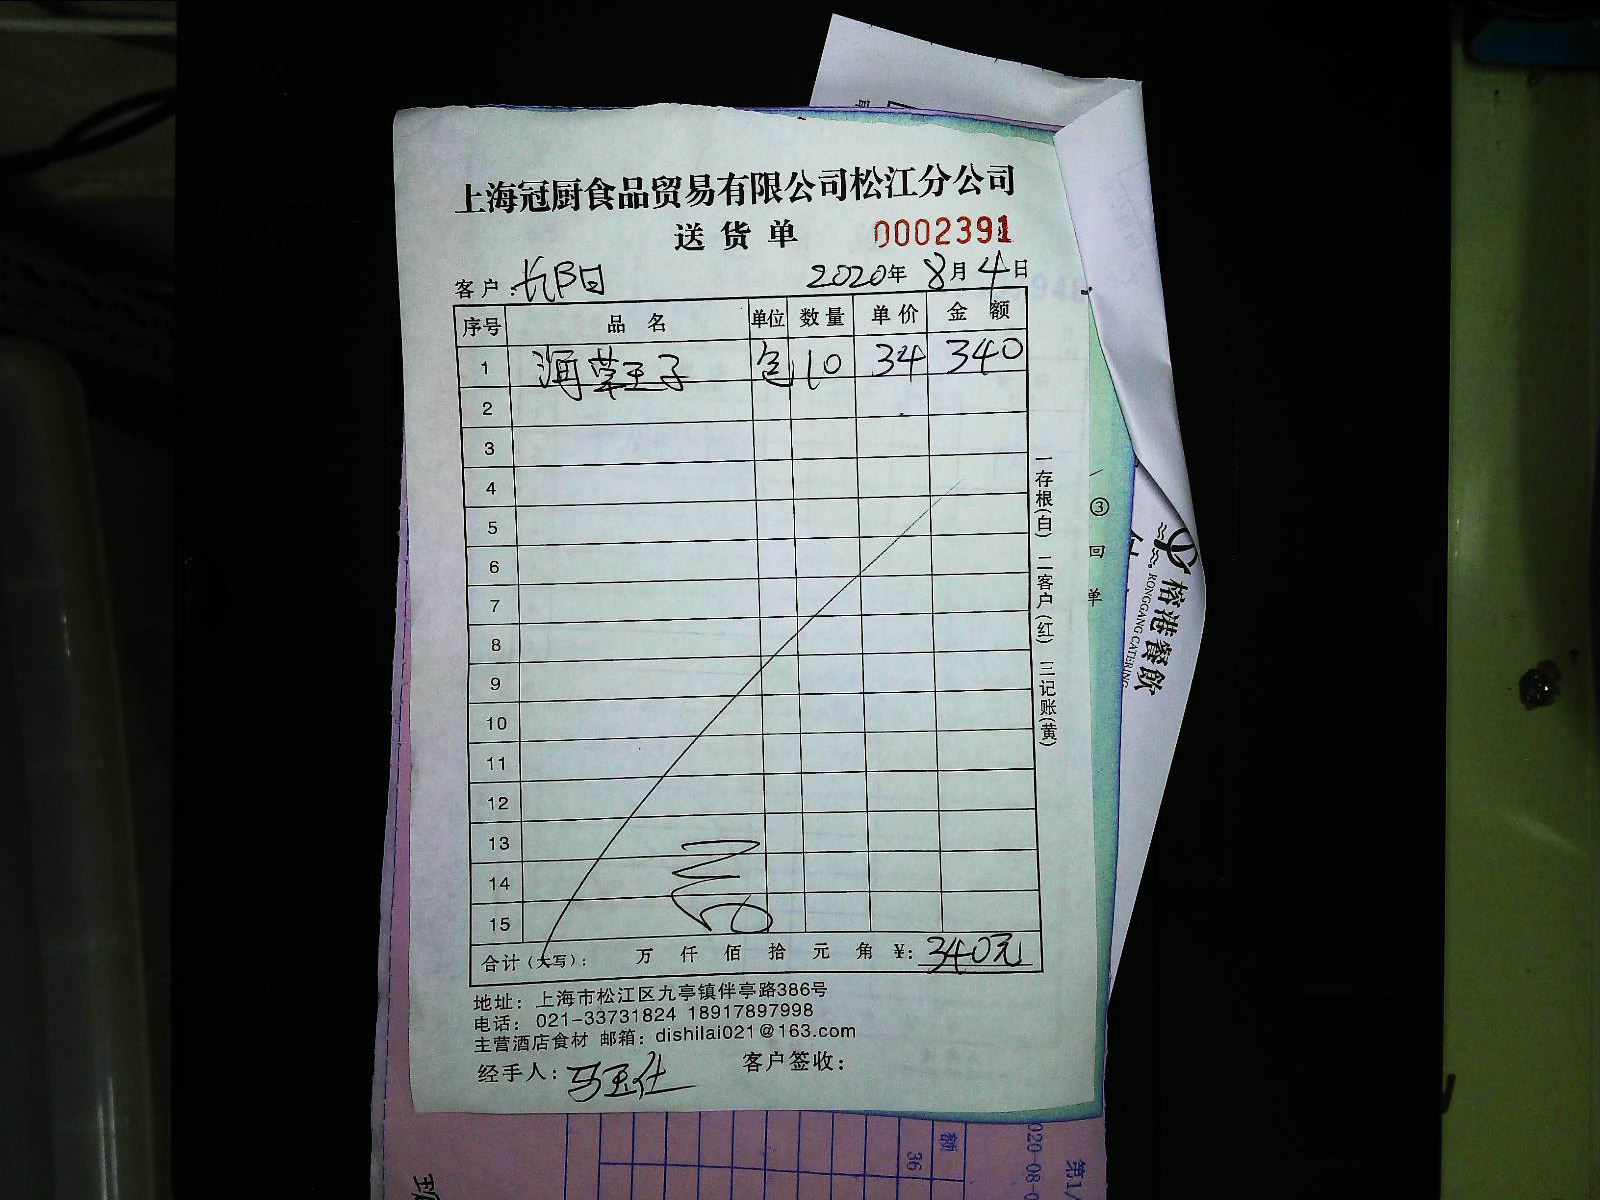 上海冠厨食品贸易有限公司松江分公司
送货单 0002391
客户: 长阳 2020年 8月 4日
序号 品名 单位 数量 单价 金额
1 海草王子 包 10 34 340
2
3
4
5
6
7
8
9
10
11
12
13
14
15
合计(大写): 万 仟 佰 拾 元 角 ¥: 340元
地址: 上海市松江区九亭镇伴亭路386号
电话: 021-33731824 18917897998
主营酒店食材 邮箱: dishilai021@163.com
经手人: 客户签收:
一存根(白) 二客户(红) 三记账(黄)
③回单
榕港餐飲
RONGGANG CATERING
额
36
第1/